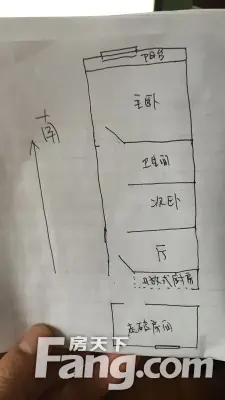 阳台
主卧
南
卫生间
次卧
厅
开放式厨房
房天下
Fang.com